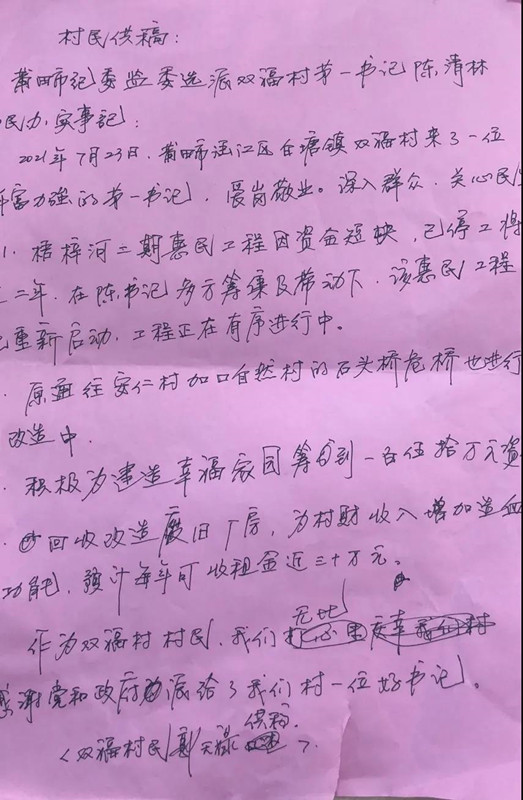 村民供稿：
莆田市纪委监委选派双福村第一书记陈清林
民办实事记：
2021年7月23日，莆田市涵江区白塘镇双福村来了一位
年富力强的第一书记，爱岗敬业。深入群众，关心民
1. 梧梓河二期惠民工程因资金短缺，已停工将
二年，在陈书记多方筹集及带动下，该惠民工程
已重新启动，工程正在有序进行中。
原通往安仁村加口自然村的石头桥危桥也进行
改造中．
积极为建造幸福家园筹备到一百伍拾万元资
回收改造废旧厂房，为村财收入增加造血
功能，预计每年可收租金近三十万元。
无比
作为双福村村民，我们庆幸我们村
感谢党和政府派给了我们村一位好书记。
供稿．
〈双福村民郭天禄〉